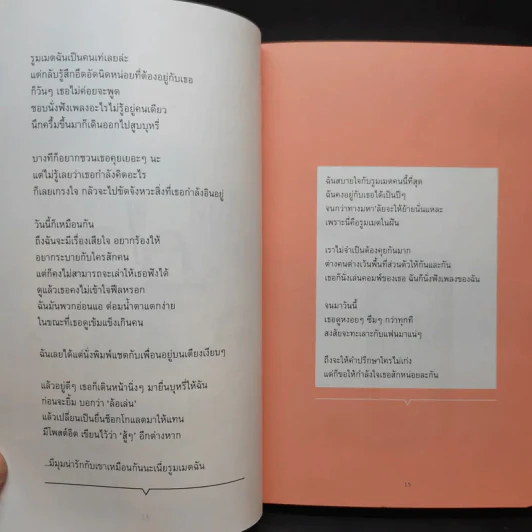 รูมเมตฉันเป็นคนเท่เลยล่ะ
แต่กลับรู้สึกอึดอัดนิดหน่อยที่ต้องอยู่กับเธอ
ก็วันๆ เธอไม่ค่อยจะพูด
ชอบนั่งฟังเพลงอะไรไม่รู้อยู่คนเดียว
นึกครึ้มขึ้นมาก็เดินออกไปสูบบุหรี่
บางทีก็อยากชวนเธอคุยเยอะๆ นะ
แต่ไม่รู้เลยว่าเธอกำลังคิดอะไร
ก็เลยเกรงใจ กลัวจะไปขัดจังหวะสิ่งที่เธอกำลังอินอยู่
วันนี้ก็เหมือนกัน
ถึงฉันจะมีเรื่องเสียใจ อยากร้องไห้
อยากระบายกับใครสักคน
แต่ก็คงไม่สามารถจะเล่าให้เธอฟังได้
ดูแล้วเธอคงไม่เข้าใจฟีลหรอก
ฉันมันพวกอ่อนแอ ต่อมน้ำตาแตกง่าย
ในขณะที่เธอดูเข้มแข็งเกินคน
ฉันเลยได้แต่นั่งพิมพ์แชตกับเพื่อนอยู่บนเตียงเงียบๆ
แล้วอยู่ดีๆ เธอก็เดินหน้านิ่งๆ มายื่นบุหรี่ให้ฉัน
ก่อนจะยิ้ม บอกว่า 'ล้อเล่น'
แล้วเปลี่ยนเป็นยื่นช็อกโกแลตมาให้แทน
มีโพสต์อิต เขียนไว้ว่า 'สู้ๆ' อีกต่างหาก
..มีมุมน่ารักกับเขาเหมือนกันนะเนี่ยรูมเมตฉัน
ฉันสบายใจกับรูมเมตคนนี้ที่สุด
ฉันคงอยู่กับเธอได้เป็นปีๆ
จนกว่าทางมหา'ลัยจะให้ย้ายนั่นแหละ
เพราะนี่คือรูมเมตในฝัน
เราไม่จำเป็นต้องคุยกันมาก
ต่างคนต่างเว้นพื้นที่ส่วนตัวให้กันและกัน
เธอก็นั่งเล่นคอมพ์ของเธอ ฉันก็นั่งฟังเพลงของฉัน
จนมาวันนี้
เธอดูหงอยๆ ซึมๆ กว่าทุกที
สงสัยจะทะเลาะกับแฟนมาแน่ๆ
ถึงจะให้คำปรึกษาใครไม่เก่ง
แต่ก็ขอให้กำลังใจเธอสักหน่อยละกัน
15